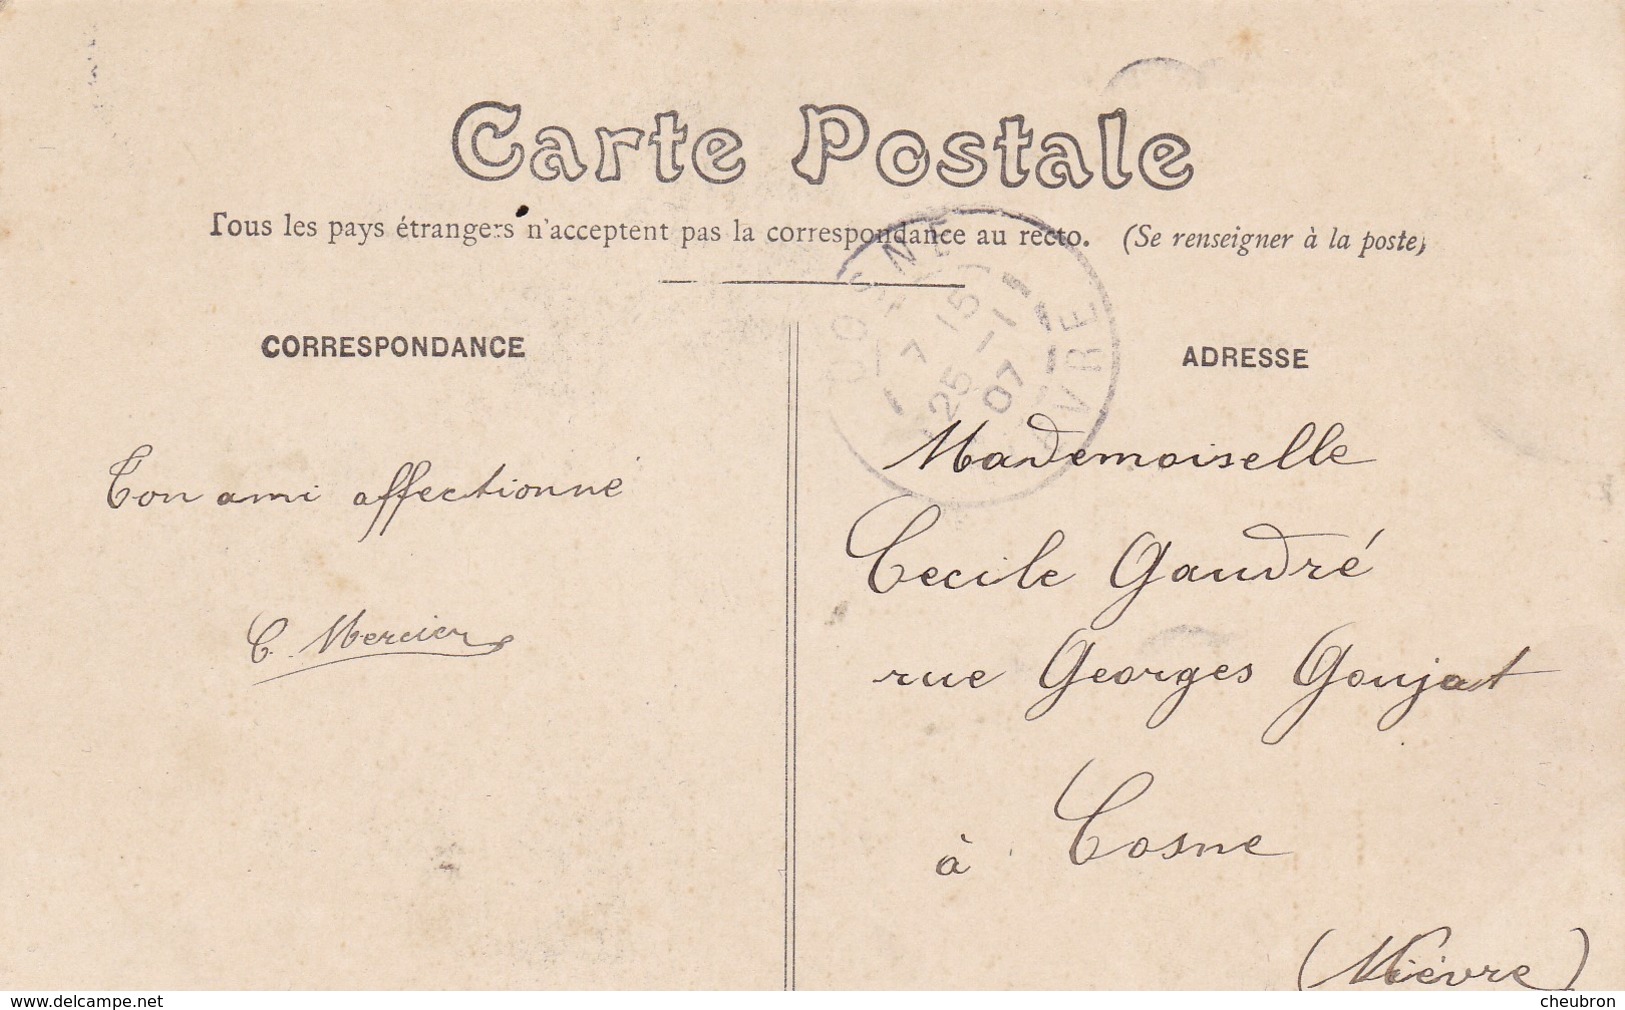 Carte Postale
Tous les pays étrangers n'acceptent pas la correspondance au recto. (Se renseigner à la poste)
CORRESPONDANCE
Ton ami affectionné
C. Mercier
COSNE
7 15
25 - 1
07
NIÈVRE
ADRESSE
Mademoiselle
Cecile Gaudré
rue Georges Goujat
à Cosne
(Nièvre)
www.delcampe.net
cheubron